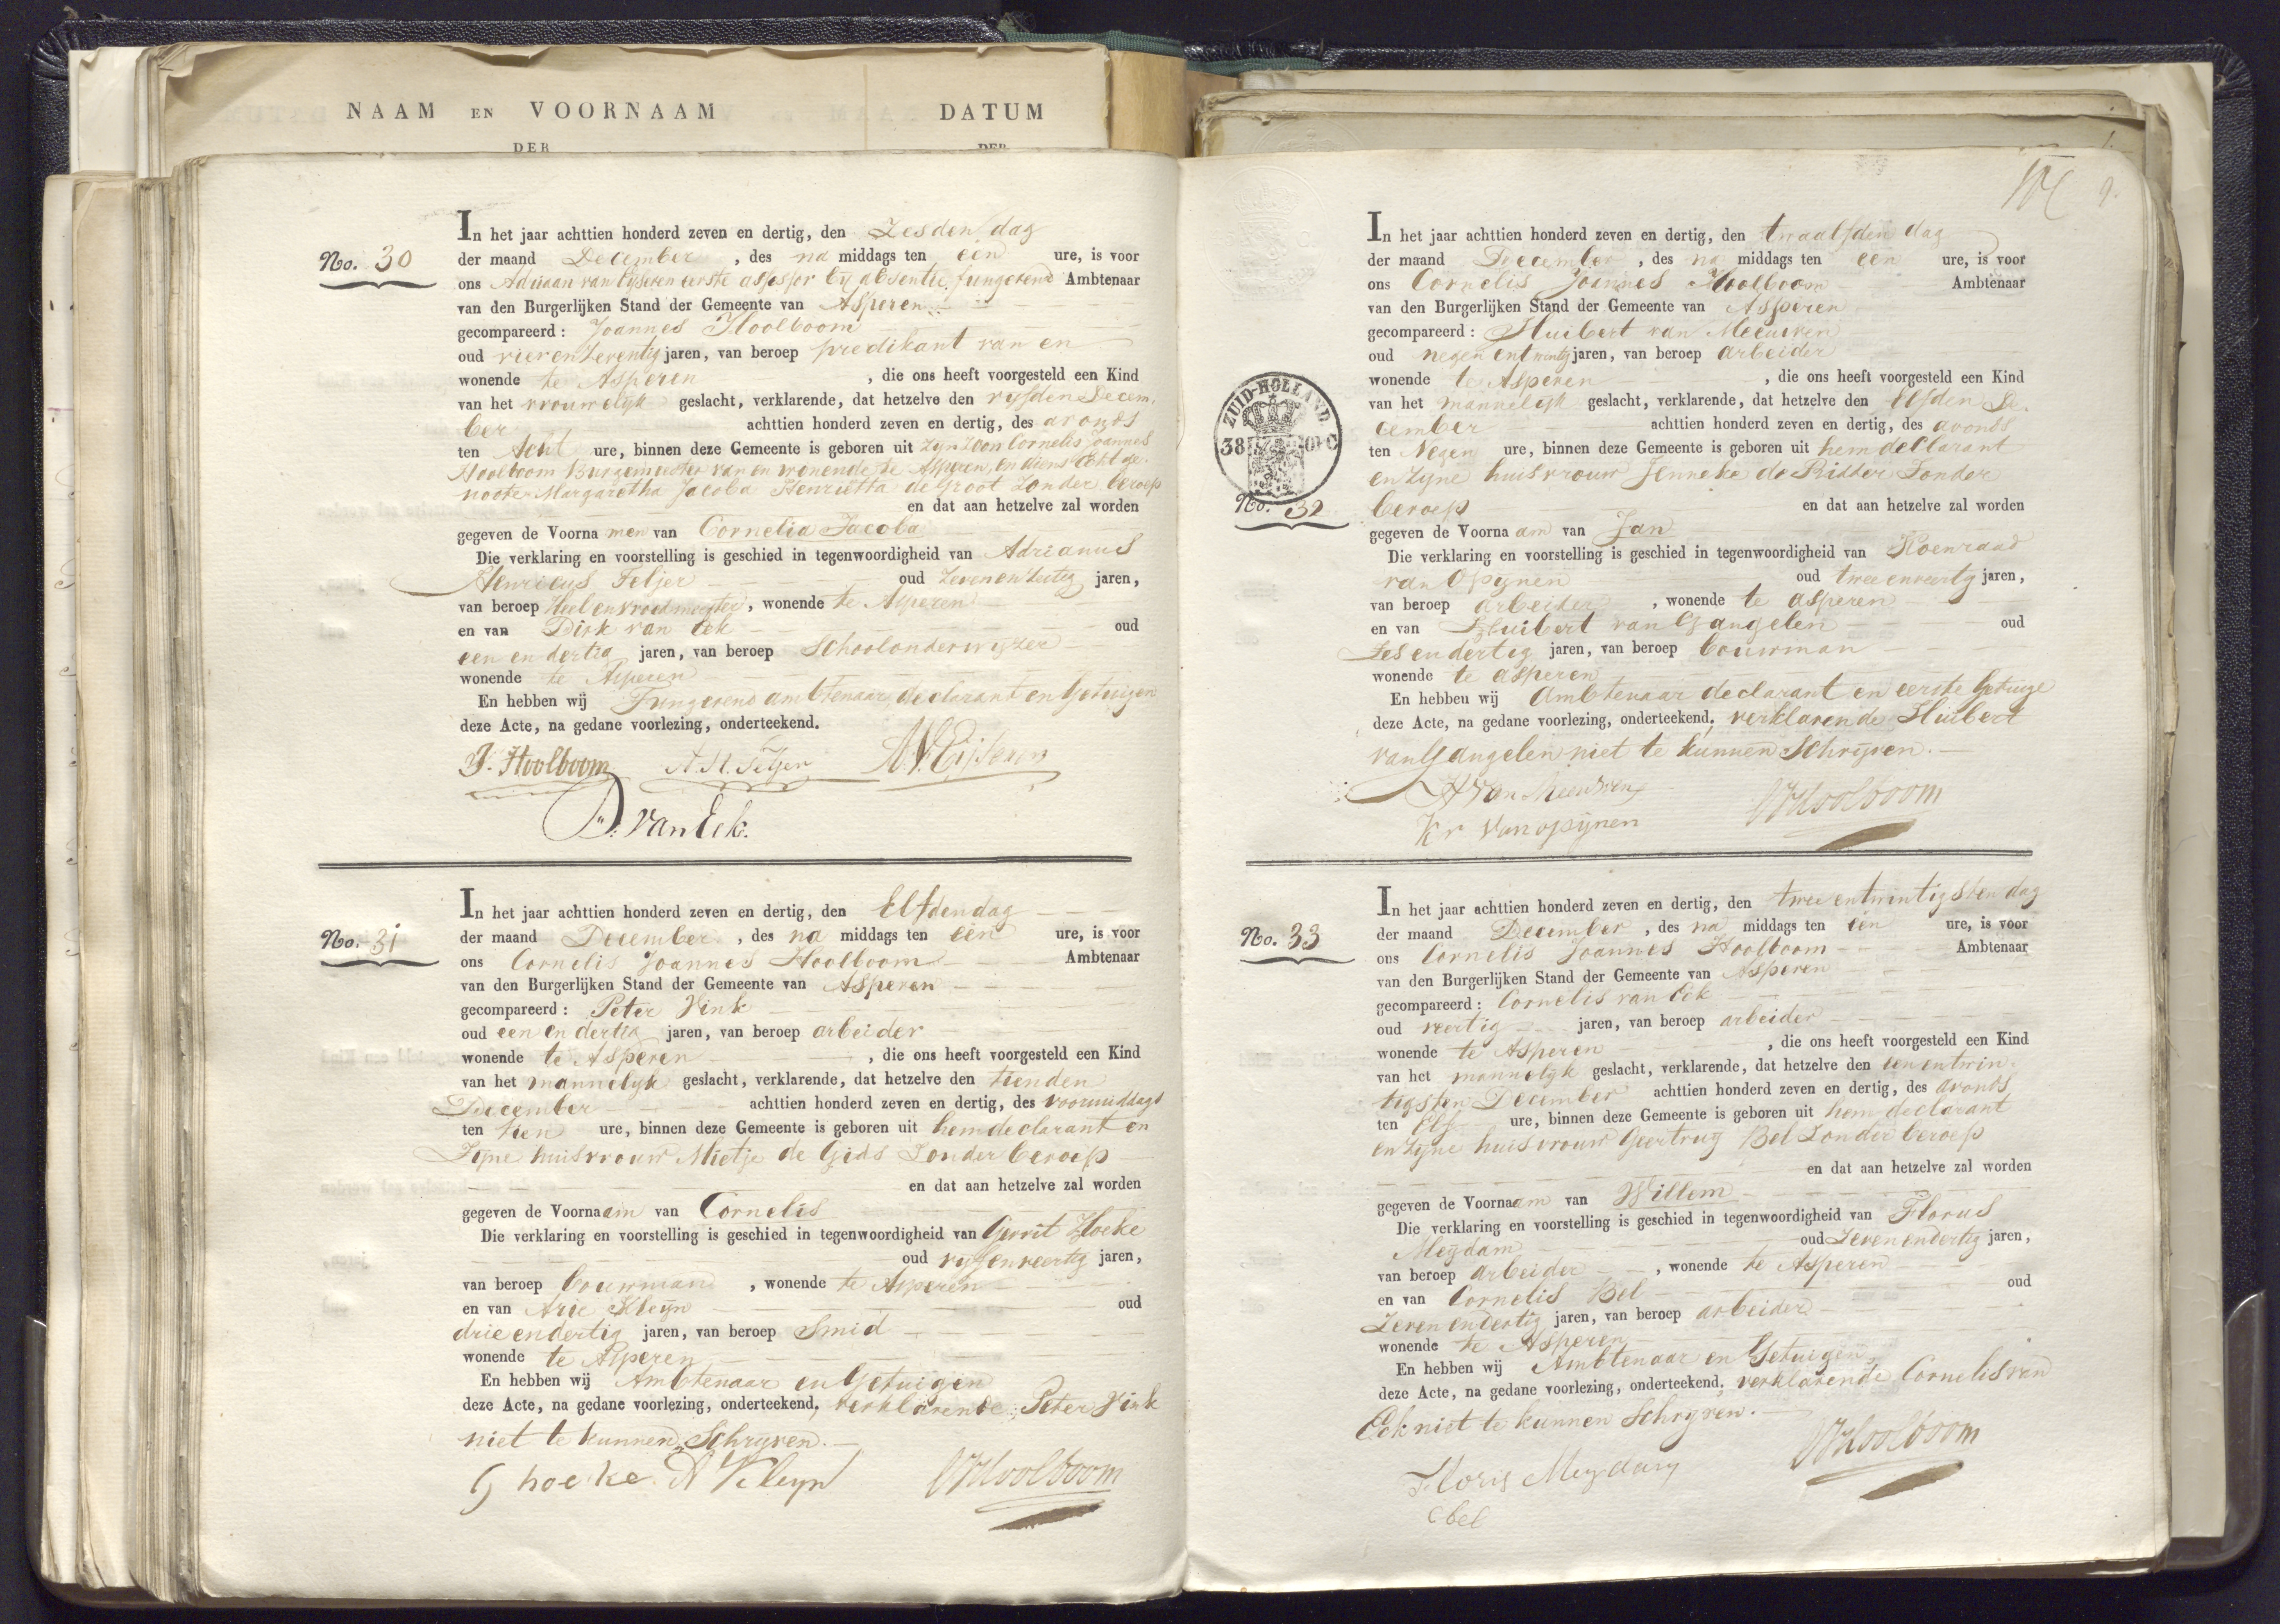 NAAM EN VOORNAAM
DER
DATUM
DER
No. 30
In het jaar achttien honderd zeven en dertig, den Zesden dag
der maand December, des na middags ten een ure, is voor
ons Adriaan van Eijseren eerste assessor bij absentie fungerend Ambtenaar
van den Burgerlijken Stand der Gemeente van Asperen
gecompareerd: Joannes Hoolboom
oud vier en Zeventig jaren, van beroep predikant van en
wonende te Asperen, die ons heeft voorgesteld een Kind
van het vrouwelijk geslacht, verklarende, dat hetzelve den vyfden Decem,
ber achttien honderd zeven en dertig, des avonds
ten Acht ure, binnen deze Gemeente is geboren uit Zyn Zoon Cornelis Joannes
Hoolboom Burgemeester van en wonende te Asperen, en diens Echt ge,
noote Margaretha Jacoba Henrietta de Groot Zonder beroep
en dat aan hetzelve zal worden
gegeven de Voornamen van Cornelia Jacoba
Die verklaring en voorstelling is geschied in tegenwoordigheid van Adrianus
Henricus Teljer oud Zeven en Zestig jaren,
van beroep Heel en vroedmeester, wonende te Asperen
en van Dirk van Eck oud
een en dertig jaren, van beroep Schoolonderwyzer
wonende te Asperen
En hebben wij Fungerend ambtenaar, declarant en Getuigen
deze Acte, na gedane voorlezing, onderteekend.
J. Hoolboom A. H. Teljer A V Eijseren
D. van Eck.
No. 31
In het jaar achttien honderd zeven en dertig, den Elfden dag
der maand December, des na middags ten een ure, is voor
ons Cornelis Joannes Hoolboom Ambtenaar
van den Burgerlijken Stand der Gemeente van Asperen
gecompareerd: Peter Vink
oud een en dertig jaren, van beroep arbeider
wonende te Asperen, die ons heeft voorgesteld een Kind
van het mannelyk geslacht, verklarende, dat hetzelve den tienden
December achttien honderd zeven en dertig, des voormiddags
ten tien ure, binnen deze Gemeente is geboren uit hem declarant en
Zyne huisvrouw Mietje de Gids Zonder beroep
en dat aan hetzelve zal worden
gegeven de Voornaam van Cornelis
Die verklaring en voorstelling is geschied in tegenwoordigheid van Gerrit Hoeke
oud vyf en veertig jaren,
van beroep bouwman, wonende te Asperen
en van Arie Kleijn oud
drie en dertig jaren, van beroep Smid
wonende te Asperen
En hebben wij Ambtenaar en Getuigen
deze Acte, na gedane voorlezing, onderteekend, verklarende Peter Vink
niet te kunnen Schryven.
G hoeke A Kleyn CJHoolboom
9.
ZUID-HOLLAND
38
No. 32
In het jaar achttien honderd zeven en dertig, den twaalfden dag
der maand December, des na middags ten een ure, is voor
ons Cornelis Joannes Hoolboom Ambtenaar
van den Burgerlijken Stand der Gemeente van Asperen
gecompareerd: Huibert van Meeuwen
oud negen entwintig jaren, van beroep arbeider
wonende te Asperen, die ons heeft voorgesteld een Kind
van het mannelyk geslacht, verklarende, dat hetzelve den elfden De,
cember achttien honderd zeven en dertig, des avonds
ten Negen ure, binnen deze Gemeente is geboren uit hem declarant
en Zyne huisvrouw Jenneke de Ridder Zonder
beroep en dat aan hetzelve zal worden
gegeven de Voornaam van Jan
Die verklaring en voorstelling is geschied in tegenwoordigheid van Koenraad
van Opynen oud twee en veertig jaren,
van beroep arbeider, wonende te asperen
en van Huibert van Gangelen oud
Zes en dertig jaren, van beroep bouwman
wonende te asperen
En hebben wij Ambtenaar declarant en eerste Getuige
deze Acte, na gedane voorlezing, onderteekend, verklarende Huibert
van Gangelen niet te kunnen Schryven.
H van Meeuwen CJHoolboom
Kr van opijnen
No. 33
In het jaar achttien honderd zeven en dertig, den twee entwintigsten dag
der maand December, des na middags ten een ure, is voor
ons Cornelis Joannes Hoolboom Ambtenaar
van den Burgerlijken Stand der Gemeente van Asperen
gecompareerd: Cornelis van Eck
oud veertig jaren, van beroep arbeider
wonende te Asperen, die ons heeft voorgesteld een Kind
van het mannelyk geslacht, verklarende, dat hetzelve den een entwin,
tigsten December achttien honderd zeven en dertig, des avonds
ten Elf ure, binnen deze Gemeente is geboren uit hem declarant
en Zyne huisvrouw Geertruy Bel Zonder beroep
en dat aan hetzelve zal worden
gegeven de Voornaam van Willem
Die verklaring en voorstelling is geschied in tegenwoordigheid van Florus
Meijdam oud Zeven en dertig jaren,
van beroep arbeider, wonende te Asperen
en van Cornelis Bel oud
Zeven en dertig jaren, van beroep arbeider
wonende te Asperen
En hebben wij Ambtenaar en Getuigen
deze Acte, na gedane voorlezing, onderteekend, verklarende Cornelis van
Eck niet te kunnen Schryven.
Floris Meydam CJHoolboom
C bel